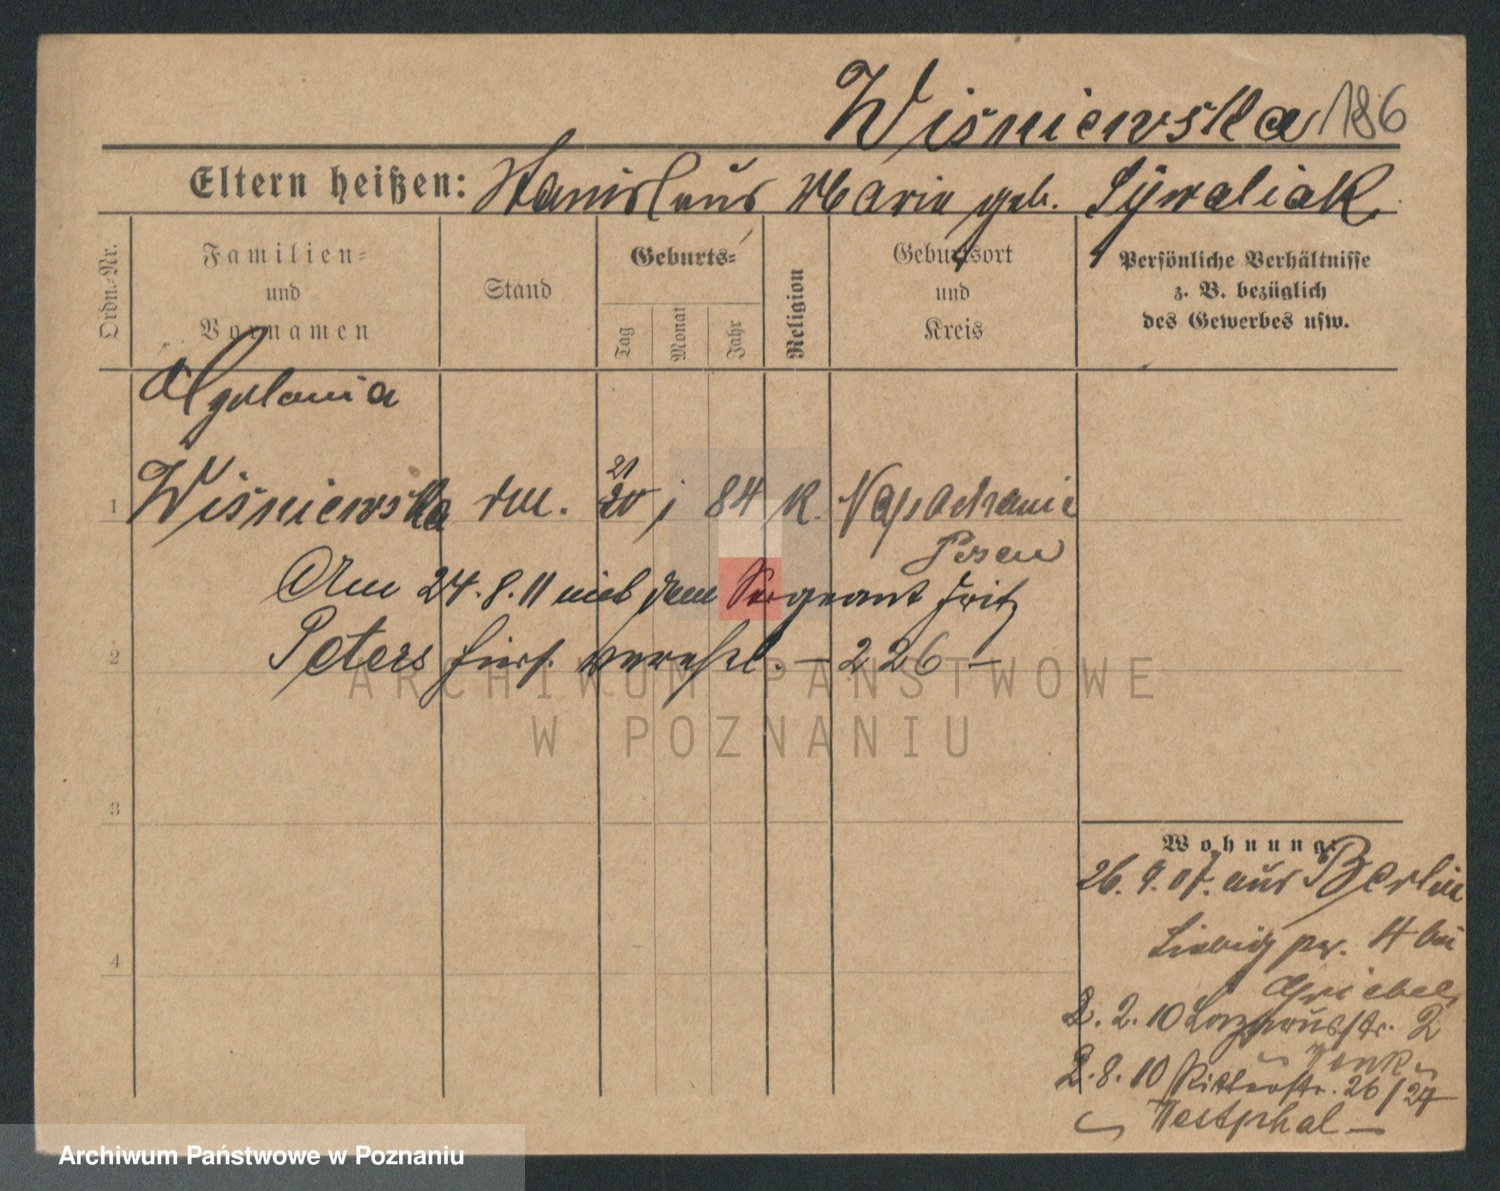 Wiśniewska 186
Eltern heißen: Stanislaus Marie geb. Sÿwaliak
Ordn.-Nr.
Familien-
und
Vornamen
Stand
Geburts-
Tag
Monat
Jahr
Religion
Geburtsort
und
Kreis
Persönliche Verhältnisse
z. B. bezüglich
des Gewerbes usw.
Apolonia
21
1 Wiśniewska 20 j 84 K. Napachanie
Posen
Am 24.8.11 mit dem Sergeant Fritz
2 Peters hiers. verehel. – 226 –
ARCHIWUM PAŃSTWOWE
W POZNANIU
3
4
Wohnung:
26. 9. 07. aus Berlin
Liebig 4 bei
Griebel
2. 2. 10 Lazarusstr. 2
2. 8. 10 Ritterstr. 26/27
Westphal –
Archiwum Państwowe w Poznaniu